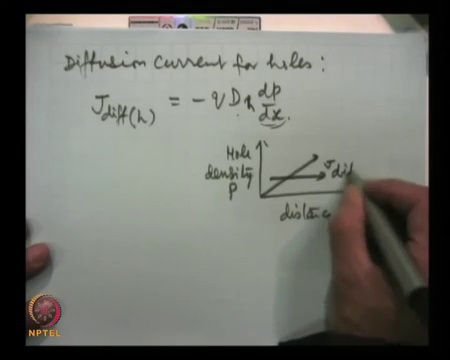 Diffusion current for holes:
J diff(h) = - q D h dp/dx.
Hole
density
p
J diff
distance
NPTEL